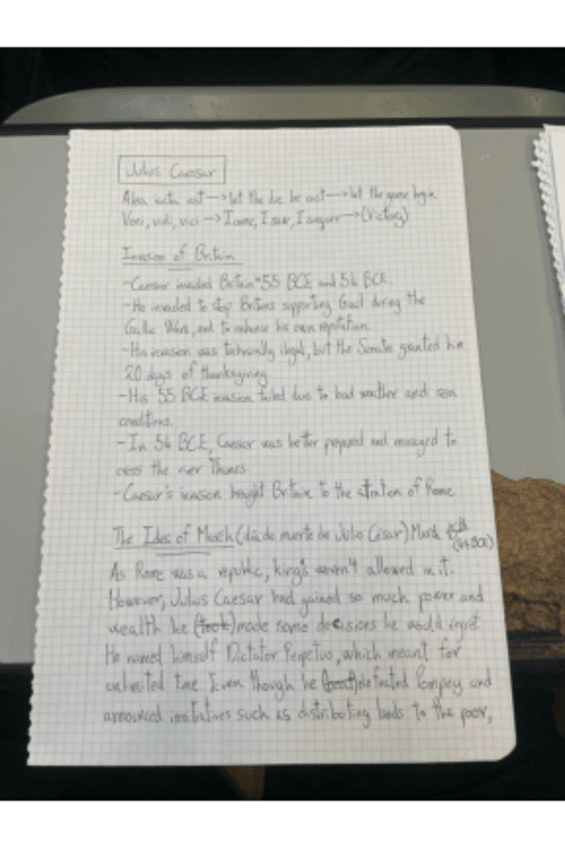 Julius Caesar
Alea iacta est → let the die be cast → let the game begin
Veni, vidi, vici → I came, I saw, I conquer → (Victory)
Invasion of Britain
-Caesar invaded Britain 55 BCE and 54 BCE.
-He invaded to stop Britons supporting Gaul during the
Gallic Wars, and to enhance his own reputation.
-His invasion was technically illegal, but the Senate granted him
20 days of thanksgiving.
-His 55 BCE invasion failed due to bad weather and sea
conditions.
-In 54 BCE, Caesar was better prepared and managed to
cross the river Thames
-Caesar's invasion brought Britain to the attention of Rome
The Ides of March (día de muerte de Julio César) March
(44 BCE)
As Rome was a republic, king's weren't allowed in it.
However, Julius Caesar had gained so much power and
wealth he (took) made some decisions he would regret.
He named himself Dictator Perpetuo, which meant for
unlimited time. Even though he defeated Pompey and
announced initiatives such as distributing lands to the poor,